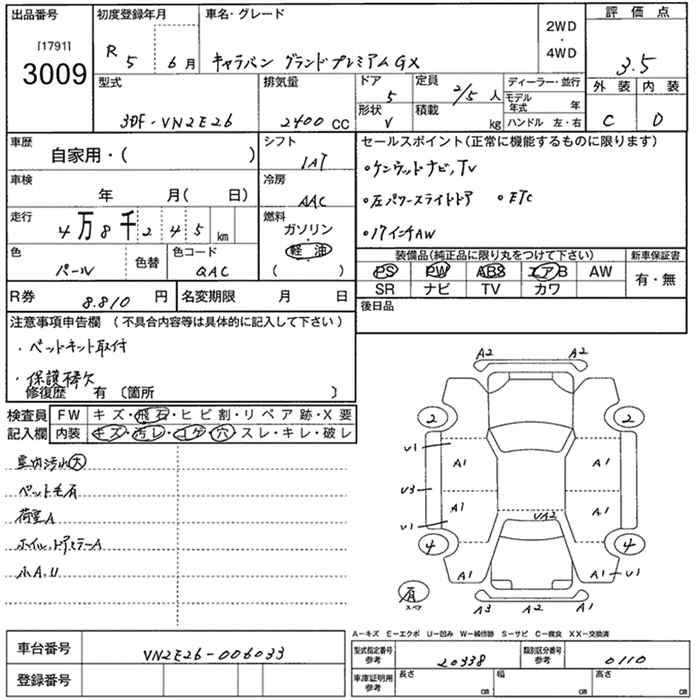 出品番号
[1791]
3009
初度登録年月
R 5 6月
車名・グレード
キャラバン グランドプレミアムGX
2WD
・
4WD
評価点
3.5
外装 内装
C D
型式
3DF-VN2E26
排気量
2400 CC
ドア
5
定員
2/5 人
形状
V
積載
kg
ディーラー・並行
モデル年式 年
ハンドル 左・右
車歴
自家用・( )
シフト
IAT
車検
年 月( 日)
冷房
AAC
走行
4万8千245 km
燃料
ガソリン
軽油
( )
色
パール
色替
色コード
QAC
R券 8.810 円
名変期限 月 日
セールスポイント(正常に機能するものに限ります)
・ケンウッドナビ,TV
・左パワースライドドア ・ETC
・17インチAW
装備品(純正品に限り丸をつけて下さい)
新車保証書
PS PW ABS エアB AW
SR ナビ TV カワ
有・無
後日品
注意事項申告欄 (不具合内容等は具体的に記入して下さい)
・ベッドキット取付
・保護棒欠
修復歴 有 〔箇所 〕
検査員
記入欄
FW キズ・飛石・ヒビ割・リペア跡・X要
内装 キズ・汚レ・コゲ・穴・スレ・キレ・破レ
室内汚れ大
ペット毛有
荷室A
ホイル,ドアミラーA
小A,U
A2 A2
2 2
U1 A1 A1
U3
A1 A1
U1 UA2
4 4
A1 A1 U1
有
スペア
A3 A2 A1
A-キズ E-エクボ U-凹み W-補修跡 S-サビ C-腐食 XX-交換済
車台番号
VN2E26-006033
登録番号
型式指定番号
参考
20338
類別区分番号
参考
0110
車庫証明用
参考
長さ cm
幅 cm
高さ cm